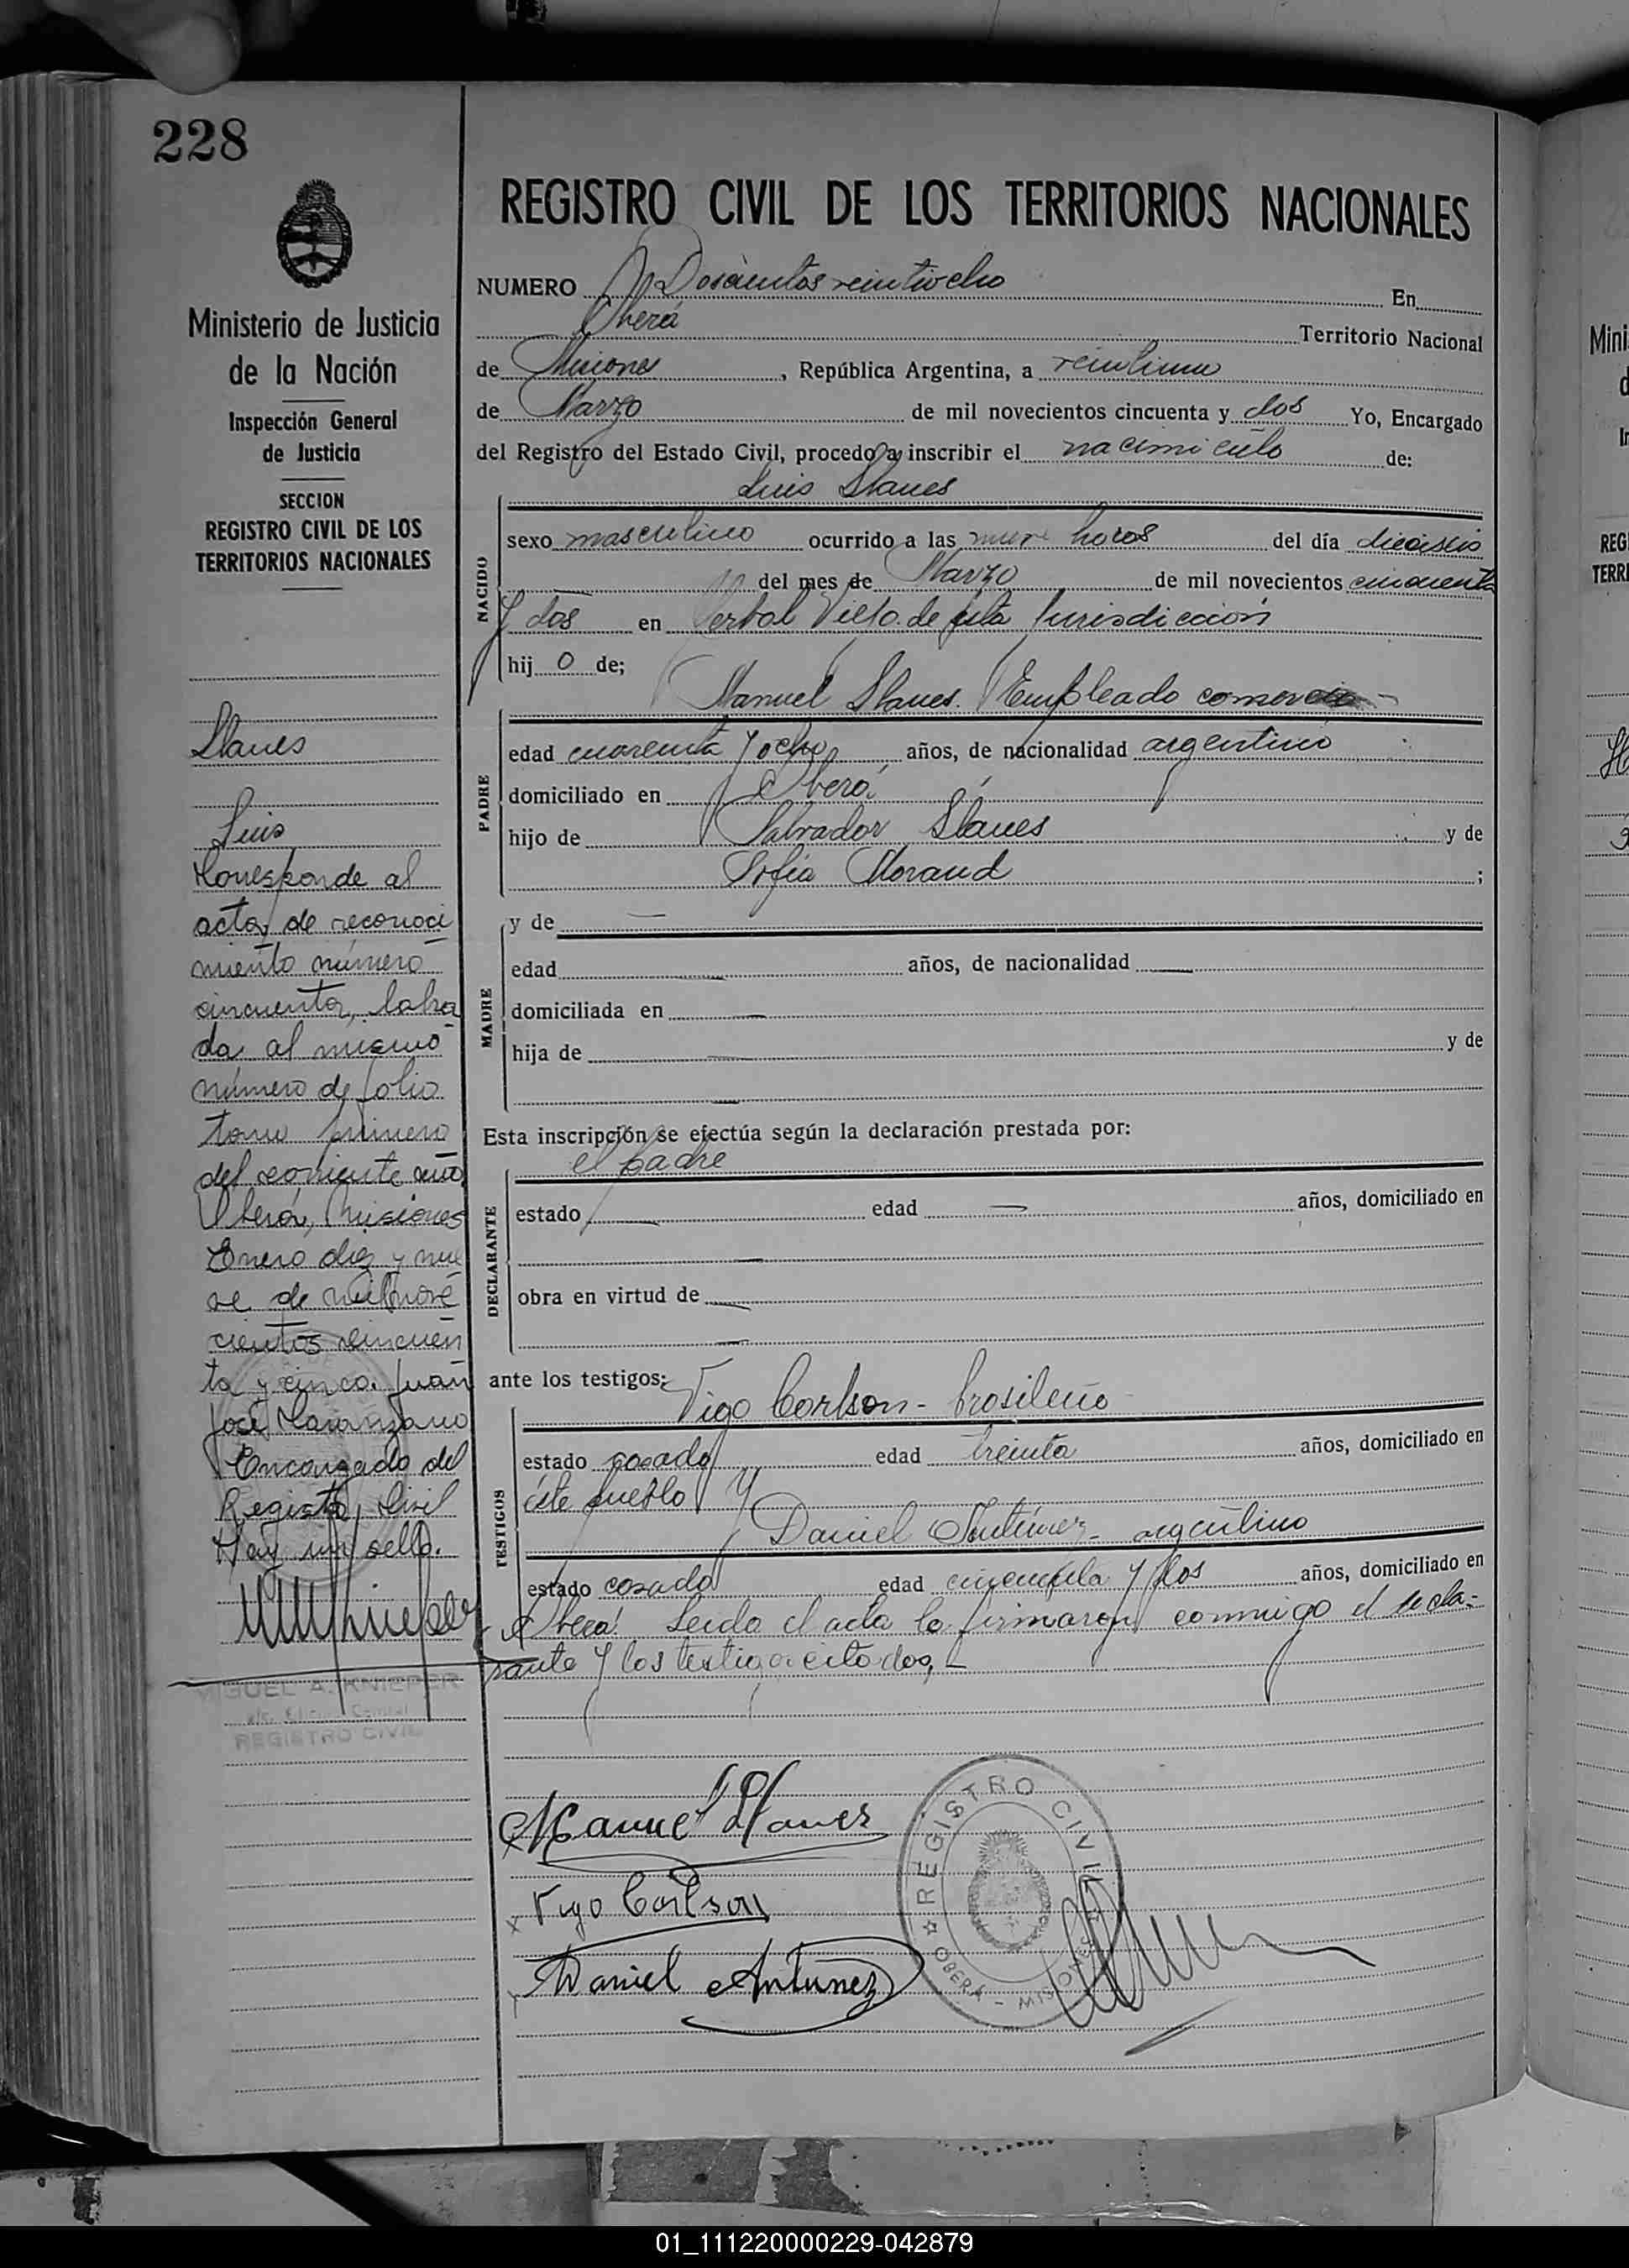 228
REGISTRO CIVIL DE LOS TERRITORIOS NACIONALES
Ministerio de Justicia
de la Nación
Inspección General
de Justicia
SECCION
REGISTRO CIVIL DE LOS
TERRITORIOS NACIONALES
Llanes
Luis
Corresponde al
acta de reconoci
miento número
cincuenta, labra
da al mismo
número de folio
tomo primero
del corriente año
Oberá, Misiones
Enero diez y nue
ve de mil nove
cientos cincuen
ta y cinco. Juan
José Maranzano
Encargado del
Registro Civil
Hay un sello.
MIGUEL A. KNIEPER
REGISTRO CIVIL
NUMERO Doscientos veintiocho En
Oberá Territorio Nacional
de Misiones, República Argentina, a veintiuno
de Marzo de mil novecientos cincuenta y dos Yo, Encargado
del Registro del Estado Civil, procedo a inscribir el nacimiento de:
Luis Llanes
NACIDO
sexo masculino ocurrido a las nueve horas del día dieciseis
del mes de Marzo de mil novecientos cincuenta
y dos en Yerbal Viejo de esta Jurisdicción
hij o de;
Manuel Llanes. Empleado comercio
PADRE
edad cuarenta y ocho años, de nacionalidad argentino
domiciliado en Oberá
hijo de Salvador Llanes y de
Sofia Morand ;
MADRE
y de
edad años, de nacionalidad
domiciliada en
hija de y de
Esta inscripción se efectúa según la declaración prestada por:
el padre
DECLARANTE
estado edad años, domiciliado en
obra en virtud de
ante los testigos:
Vigo Carlson - brasileño
TESTIGOS
estado casado edad treinta años, domiciliado en
éste pueblo y
Daniel Antunez - argentino
estado casado edad cincuenta y dos años, domiciliado en
Oberá. Leida el acta la firmaron conmigo el decla-
rante y los testigos citados,
Manuel Llanes
Vigo Carlson
Daniel Antunez
REGISTRO CIVIL
OBERÁ - MISIONES
Mini
REG
TERR
01_111220000229-042879